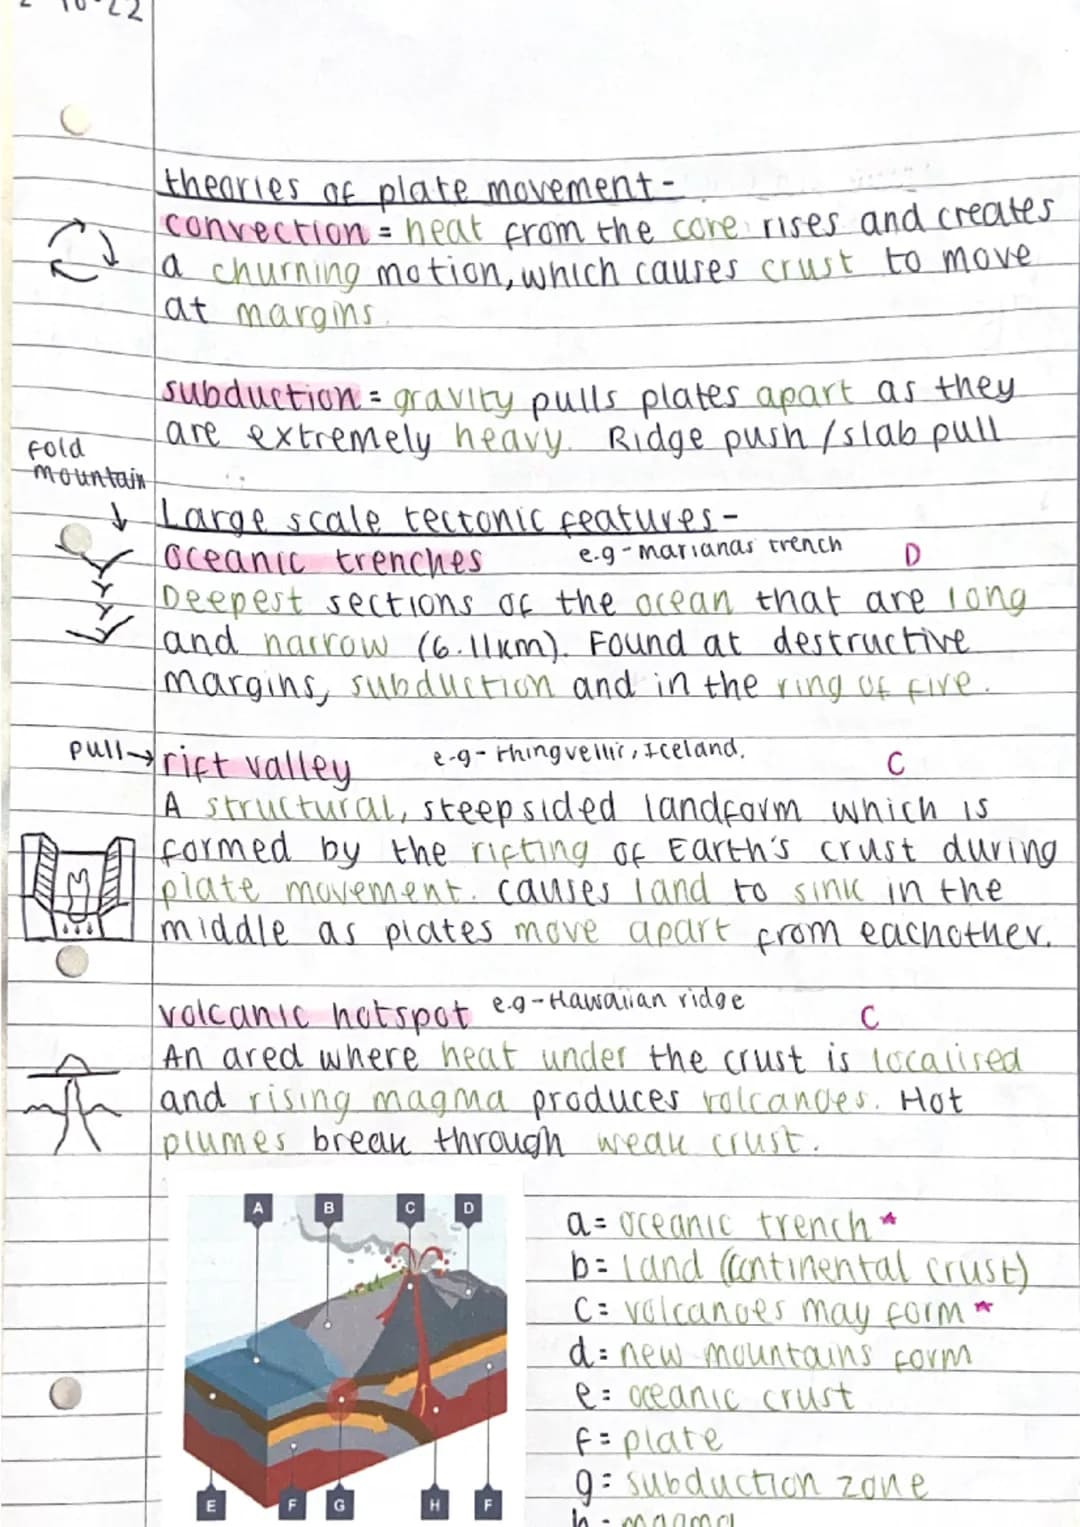 theories of plate movement-
convection = heat from the core rises and creates
a churning motion, which causes crust to move
at margins.
subduction = gravity pulls plates apart as they
are extremely heavy. Ridge push / slab pull
fold
mountain
Large scale tectonic features-
oceanic trenches e.g - marianas trench D
Deepest sections of the ocean that are long
and narrow (6.11km). Found at destructive
margins, subduction and in the ring of fire.
pull→ rift valley e-g- thingvellir, Iceland. C
A structural, steep sided landform which is
formed by the rifting of Earth's crust during
plate movement. causes land to sink in the
middle as plates move apart from eachother.
volcanic hotspot e.g - Hawaiian ridge C
An area where heat under the crust is localised
and rising magma produces volcanoes. Hot
plumes break through weak crust.
A B C D
a= oceanic trench *
b= land (continental crust)
C= volcanoes may form *
d= new mountains form
e= oceanic crust
f= plate
g= subduction zone
E F G H F
h- magma